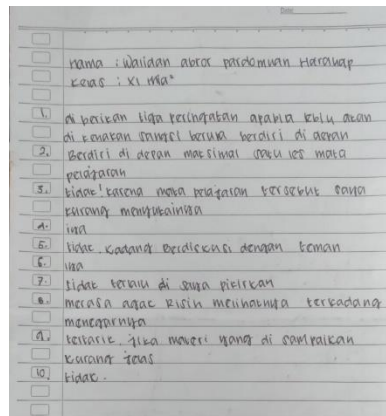 Date
nama : Walidan abror pardomuan Harahap
Kelas : XI mia²
1. di berikan tiga peringatan apabila lalu akan
di kenakan sanksi berupa berdiri di depan
2. Berdiri di depan maksimal satu les mata
pelajaran
3. tidak! karena mata pelajaran tersebut saya
kurang menyukainya
4. iya
5. tidak, kadang berdiskusi dengan teman
6. iya
7. tidak terlalu di saya pikirkan
8. merasa agak risih melihatnya terkadang
menegurnya
9. tertarik, jika materi yang di sampaikan
kurang jelas
10. tidak.